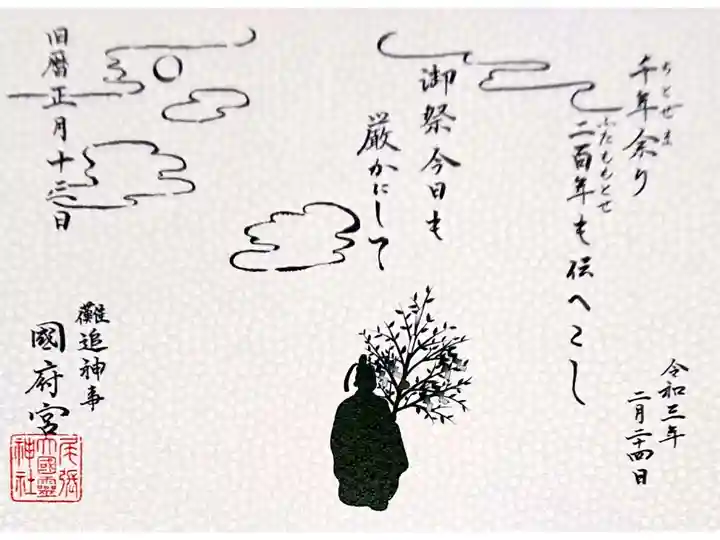 千年余り
ちとせま
二百年も伝へこし
ふたももとせ
御祭今日も
厳かにして
令和三年
二月二十四日
旧暦正月十三日
難追神事
國府宮
尾張
大國霊
神社